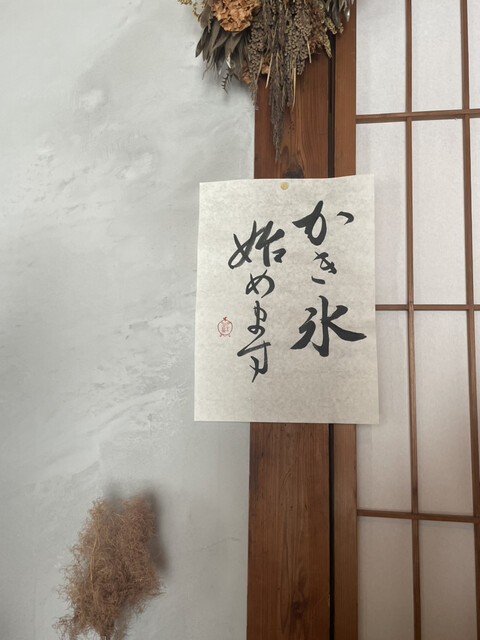 かき氷
始めます